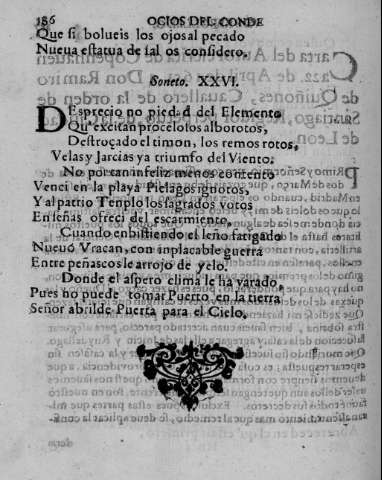 186 OCIOS DEL CONDE
Que si bolueis los ojos al pecado
Nueva estatua de sal os considero.
Soneto. XXVI.
DEsprecio no piedad del Elemento
Qu' excitan procelosos alborotos,
Destroçado el timon, los remos rotos,
Velas y Jarcias ya triumfo del Viento.
No por tan infeliz menos contento
Venci en la playa Pielagos ignotos,
Y al patrio Templo los sagrados votos
En señas ofreci del escarmiento,
Cuando enbistiendo el leño fatigado
Nuevo Vracan, con inplacable guerra
Entre peñascos le arrojo de yelo,
Donde el aspero clima le ha varado
Pues no puede tomar Puerto en la tierra
Señor abrilde Puerta para el Cielo.